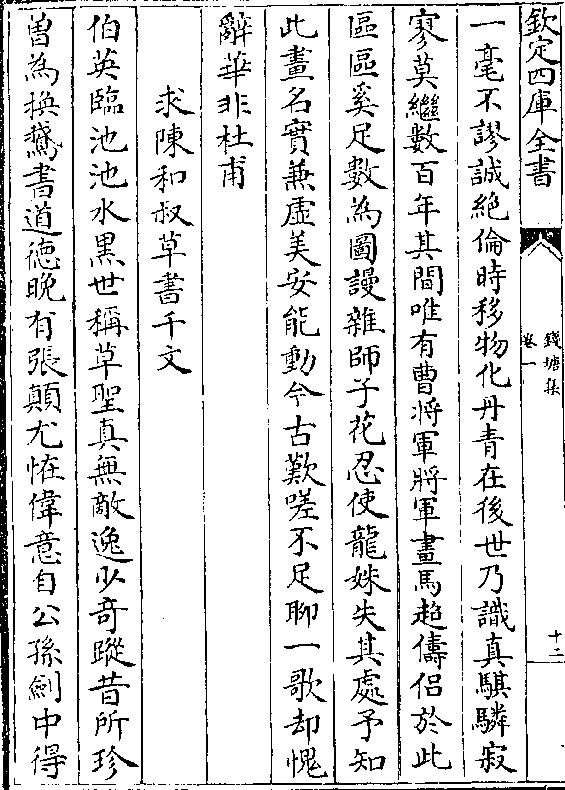 欽定四庫全書
錢塘集
卷一
十二
一毫不謬誠絶倫時移物化丹青在後世乃識真騏驎寂
寥莫繼數百年其間唯有曹將軍將軍畫馬超儔侣於此
區區奚足數為圖謾雜師子花忍使龍姝失其處予知
此畫名實兼虛美安能動今古歎嗟不足聊一歌却愧
辭華非杜甫
求陳和叔草書千文
伯英臨池池水黒世稱草聖真無敵逸少奇蹤昔所珍
曽為換鵞書道徳晩有張顛尤恠偉意自公孫劍中得